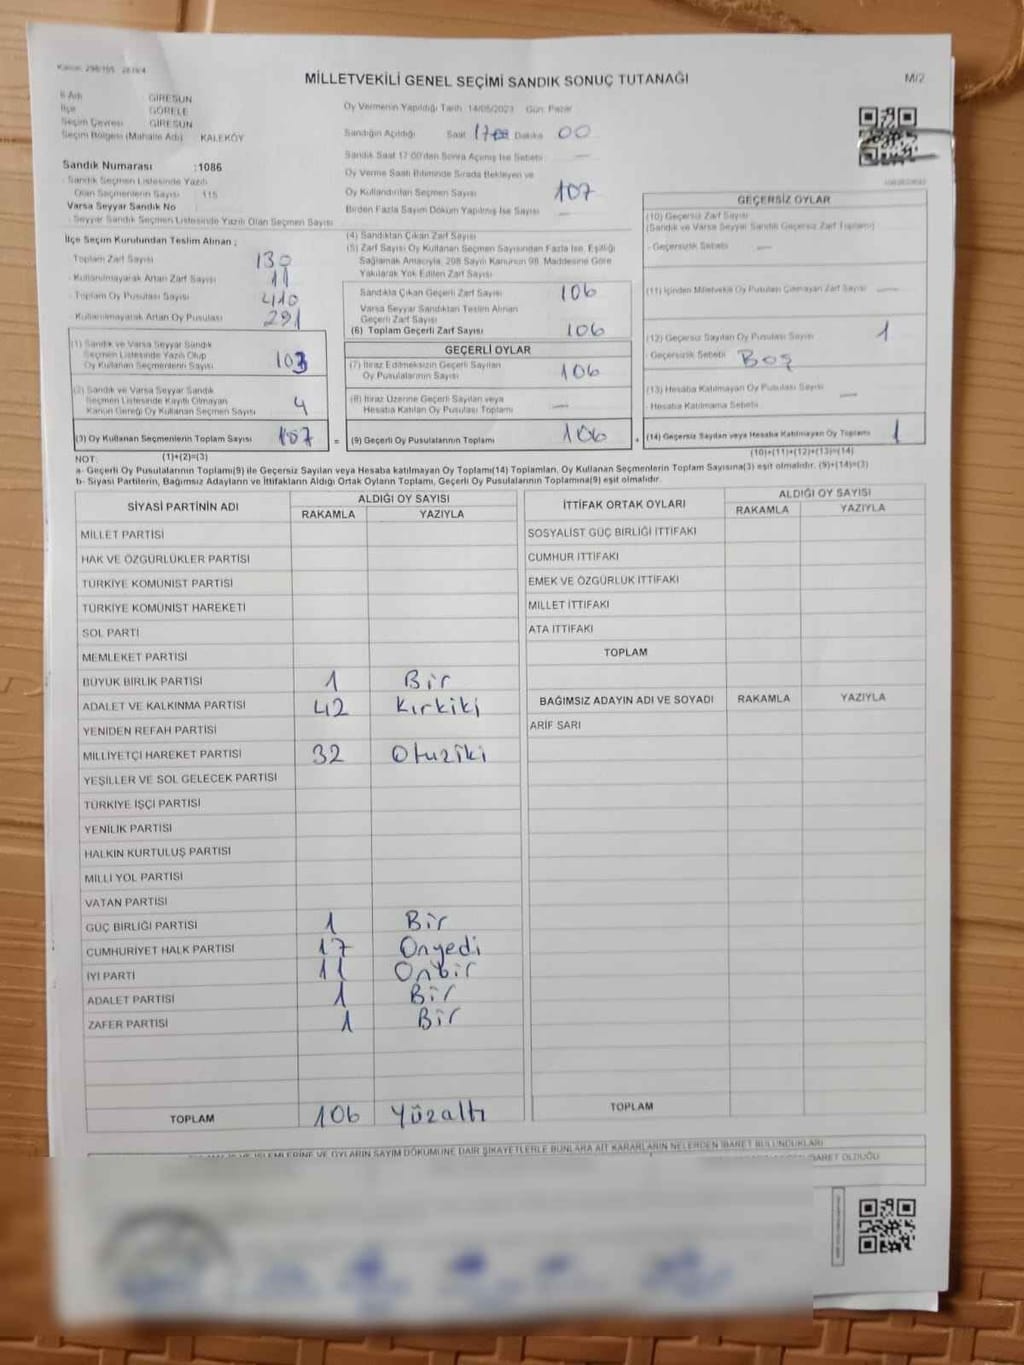 MİLLETVEKİLİ GENEL SEÇİMİ SANDIK SONUÇ TUTANAĞI
M/2
İl Adı GİRESUN
İlçe GÖRELE
Seçim Çevresi GİRESUN
Seçim Bölgesi (Mahalle Adı) KALEKÖY
Sandık Numarası :1086
Sandık Seçmen Listesinde Yazılı
Olan Seçmenlerin Sayısı 115
Varsa Seyyar Sandık No
Seyyar Sandık Seçmen Listesinde Yazılı Olan Seçmen Sayısı
İlçe Seçim Kurulundan Teslim Alınan ;
Toplam Zarf Sayısı 130
Kullanılmayarak Artan Zarf Sayısı 11
Toplam Oy Pusulası Sayısı 410
Kullanılmayarak Artan Oy Pusulası 291
(1) Sandık ve Varsa Seyyar Sandık
Seçmen Listesinde Yazılı Olup
Oy Kullanan Seçmenlerin Sayısı 103
(2) Sandık ve Varsa Seyyar Sandık
Seçmen Listesinde Kayıtlı Olmayan
Kanun Gereği Oy Kullanan Seçmen Sayısı 4
(3) Oy Kullanan Seçmenlerin Toplam Sayısı 107 =
Oy Vermenin Yapıldığı Tarih :14/05/2023 Gün: Pazar
Sandığın Açıldığı Saat 17 Dakika 00
Sandık Saat 17:00'den Sonra Açılmış İse Sebebi —
Oy Verme Saati Bitiminde Sırada Bekleyen ve
Oy Kullandırılan Seçmen Sayısı 107
Birden Fazla Sayım Döküm Yapılmış İse Sayısı —
(4) Sandıktan Çıkan Zarf Sayısı
(5) Zarf Sayısı Oy Kullanan Seçmen Sayısından Fazla İse, Eşitliği
Sağlamak Amacıyla, 298 Sayılı Kanunun 98. Maddesine Göre
Yakılarak Yok Edilen Zarf Sayısı
Sandıkta Çıkan Geçerli Zarf Sayısı 106
Varsa Seyyar Sandıktan Teslim Alınan
Geçerli Zarf Sayısı
(6) Toplam Geçerli Zarf Sayısı 106
GEÇERLİ OYLAR
(7) İtiraz Edilmeksizin Geçerli Sayılan
Oy Pusulalarının Sayısı 106
(8) İtiraz Üzerine Geçerli Sayılan veya
Hesaba Katılan Oy Pusulası Toplamı —
(9) Geçerli Oy Pusulalarının Toplamı 106 +
GEÇERSİZ OYLAR
(10) Geçersiz Zarf Sayısı
(Sandık ve Varsa Seyyar Sandık Geçersiz Zarf Toplamı)
- Geçersizlik Sebebi —
(11) İçinden Milletvekili Oy Pusulası Çıkmayan Zarf Sayısı —
(12) Geçersiz Sayılan Oy Pusulası Sayısı 1
- Geçersizlik Sebebi Boş
(13) Hesaba Katılmayan Oy Pusulası Sayısı —
- Hesaba Katılmama Sebebi
(14) Geçersiz Sayılan veya Hesaba Katılmayan Oy Toplamı 1
NOT: (1)+(2)=(3) (10)+(11)+(12)+(13)=(14)
a- Geçerli Oy Pusulalarının Toplamı(9) ile Geçersiz Sayılan veya Hesaba katılmayan Oy Toplamı(14) Toplamları, Oy Kullanan Seçmenlerin Toplam Sayısına(3) eşit olmalıdır. (9)+(14)=(3)
b- Siyasi Partilerin, Bağımsız Adayların ve İttifakların Aldığı Ortak Oyların Toplamı, Geçerli Oy Pusulalarının Toplamına(9) eşit olmalıdır.
SİYASİ PARTİNİN ADI ALDIĞI OY SAYISI
RAKAMLA YAZIYLA
MİLLET PARTİSİ
HAK VE ÖZGÜRLÜKLER PARTİSİ
TÜRKİYE KOMÜNİST PARTİSİ
TÜRKİYE KOMÜNİST HAREKETİ
SOL PARTİ
MEMLEKET PARTİSİ
BÜYÜK BİRLİK PARTİSİ 1 Bir
ADALET VE KALKINMA PARTİSİ 42 Kırkiki
YENİDEN REFAH PARTİSİ
MİLLİYETÇİ HAREKET PARTİSİ 32 Otuziki
YEŞİLLER VE SOL GELECEK PARTİSİ
TÜRKİYE İŞÇİ PARTİSİ
YENİLİK PARTİSİ
HALKIN KURTULUŞ PARTİSİ
MİLLİ YOL PARTİSİ
VATAN PARTİSİ
GÜÇ BİRLİĞİ PARTİSİ 1 Bir
CUMHURİYET HALK PARTİSİ 17 Onyedi
İYİ PARTİ 11 Onbir
ADALET PARTİSİ 1 Bir
ZAFER PARTİSİ 1 Bir
TOPLAM 106 Yüzaltı
İTTİFAK ORTAK OYLARI ALDIĞI OY SAYISI
RAKAMLA YAZIYLA
SOSYALİST GÜÇ BİRLİĞİ İTTİFAKI
CUMHUR İTTİFAKI
EMEK VE ÖZGÜRLÜK İTTİFAKI
MİLLET İTTİFAKI
ATA İTTİFAKI
TOPLAM
BAĞIMSIZ ADAYIN ADI VE SOYADI RAKAMLA YAZIYLA
ARİF SARI
TOPLAM
OYLARIN SAYIM DÖKÜMÜNE DAİR ŞİKAYETLERLE BUNLARA AİT KARARLARIN NELERDEN İBARET BULUNDUKLARI
İBARET OLDUĞU